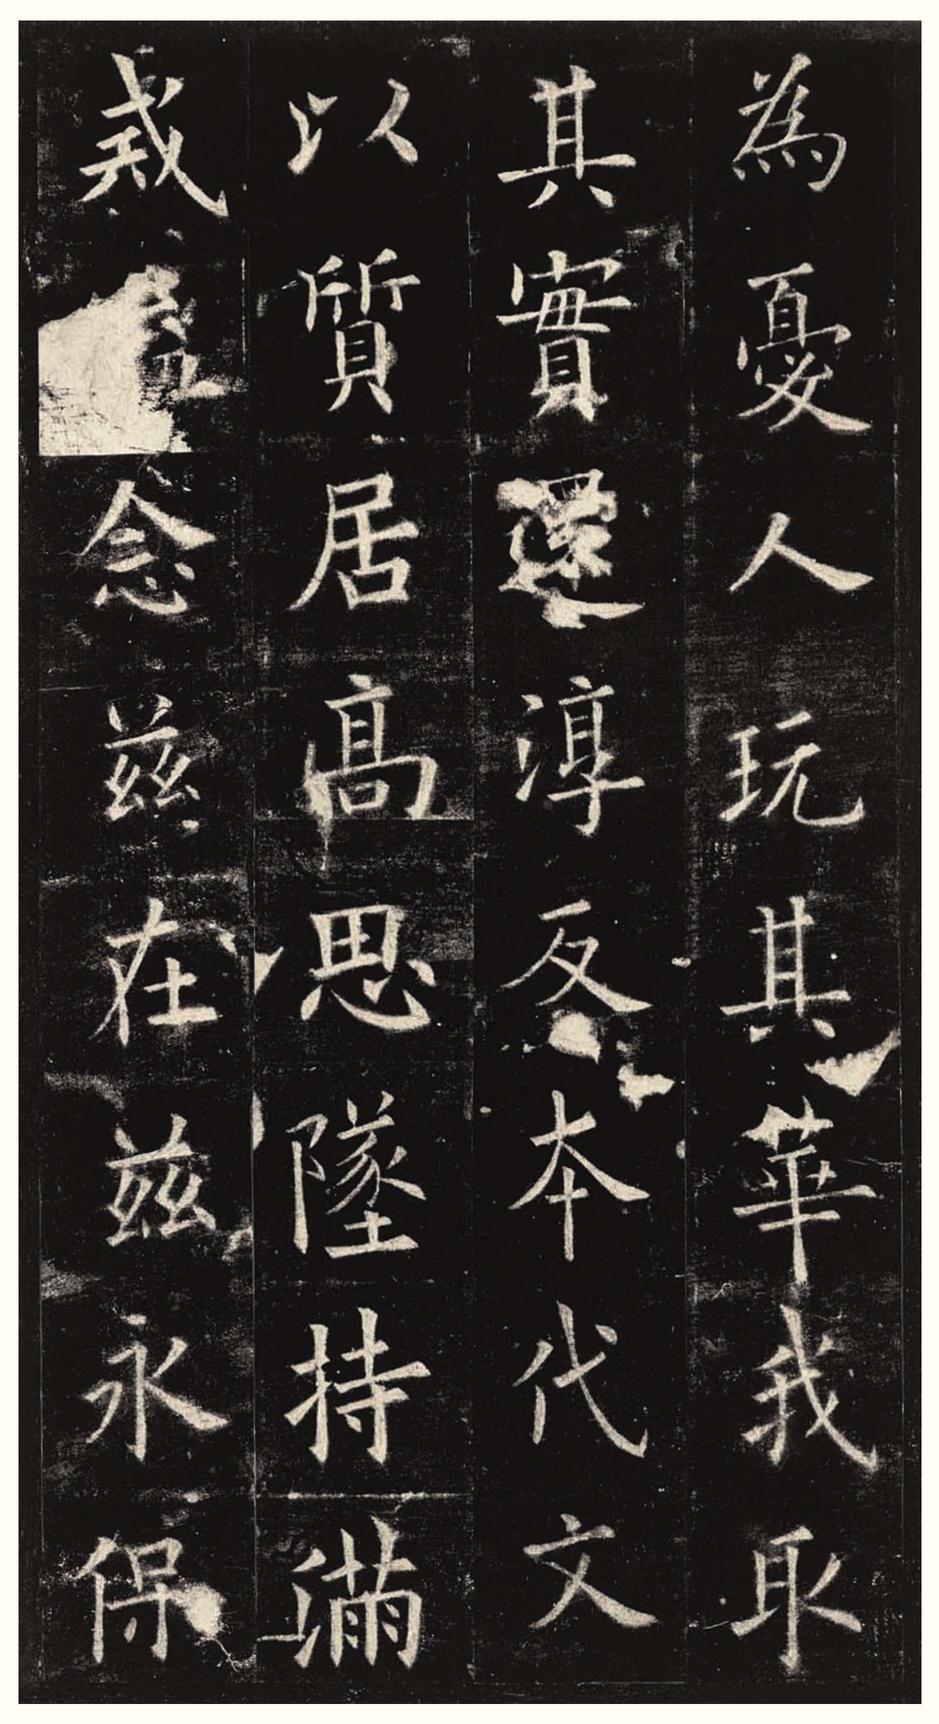 為憂人玩其華我取
其實還淳反本代文
以質居高思墜持滿
戒溢念茲在茲永保